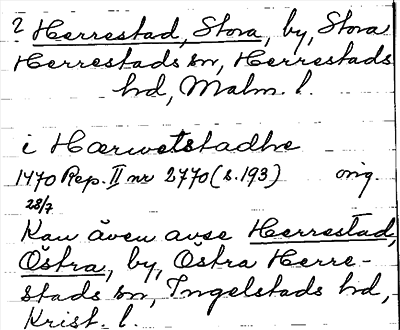 ? Herrestad, Stora, by, Stora
Herrestads sn, Herrestads
hd, Malm. l.
i Hærwetstadhe
1470 Rep. II nr 2770 (s. 193) orig.
28/7
Kan även avse Herrestad,
Östra, by, Östra Herre-
stads sn, Ingelstads hd,
Krist. l.